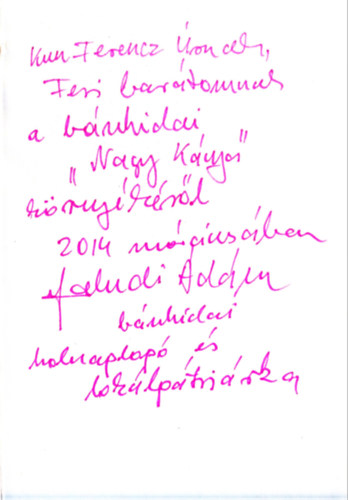 Kun Ferenc Úrnak,
Feri barátomnak
a bánhidai
„Nagy Kányó"
környékéről
2014 márciusában
Faludi Ádám
bánhidai
holnaplapó és
lokálpátriárka